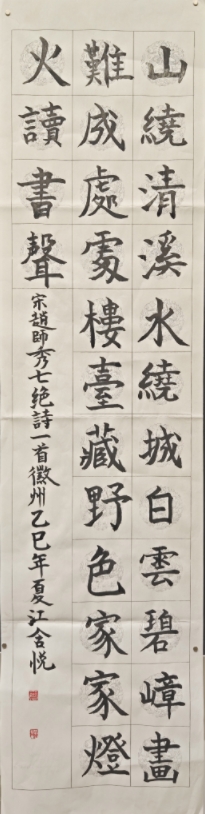 山繞清溪水繞城白雲碧嶂畫
難成處處樓臺藏野色家家燈
火讀書聲
宋趙師秀七絕詩一首徽州乙巳年夏江含悅